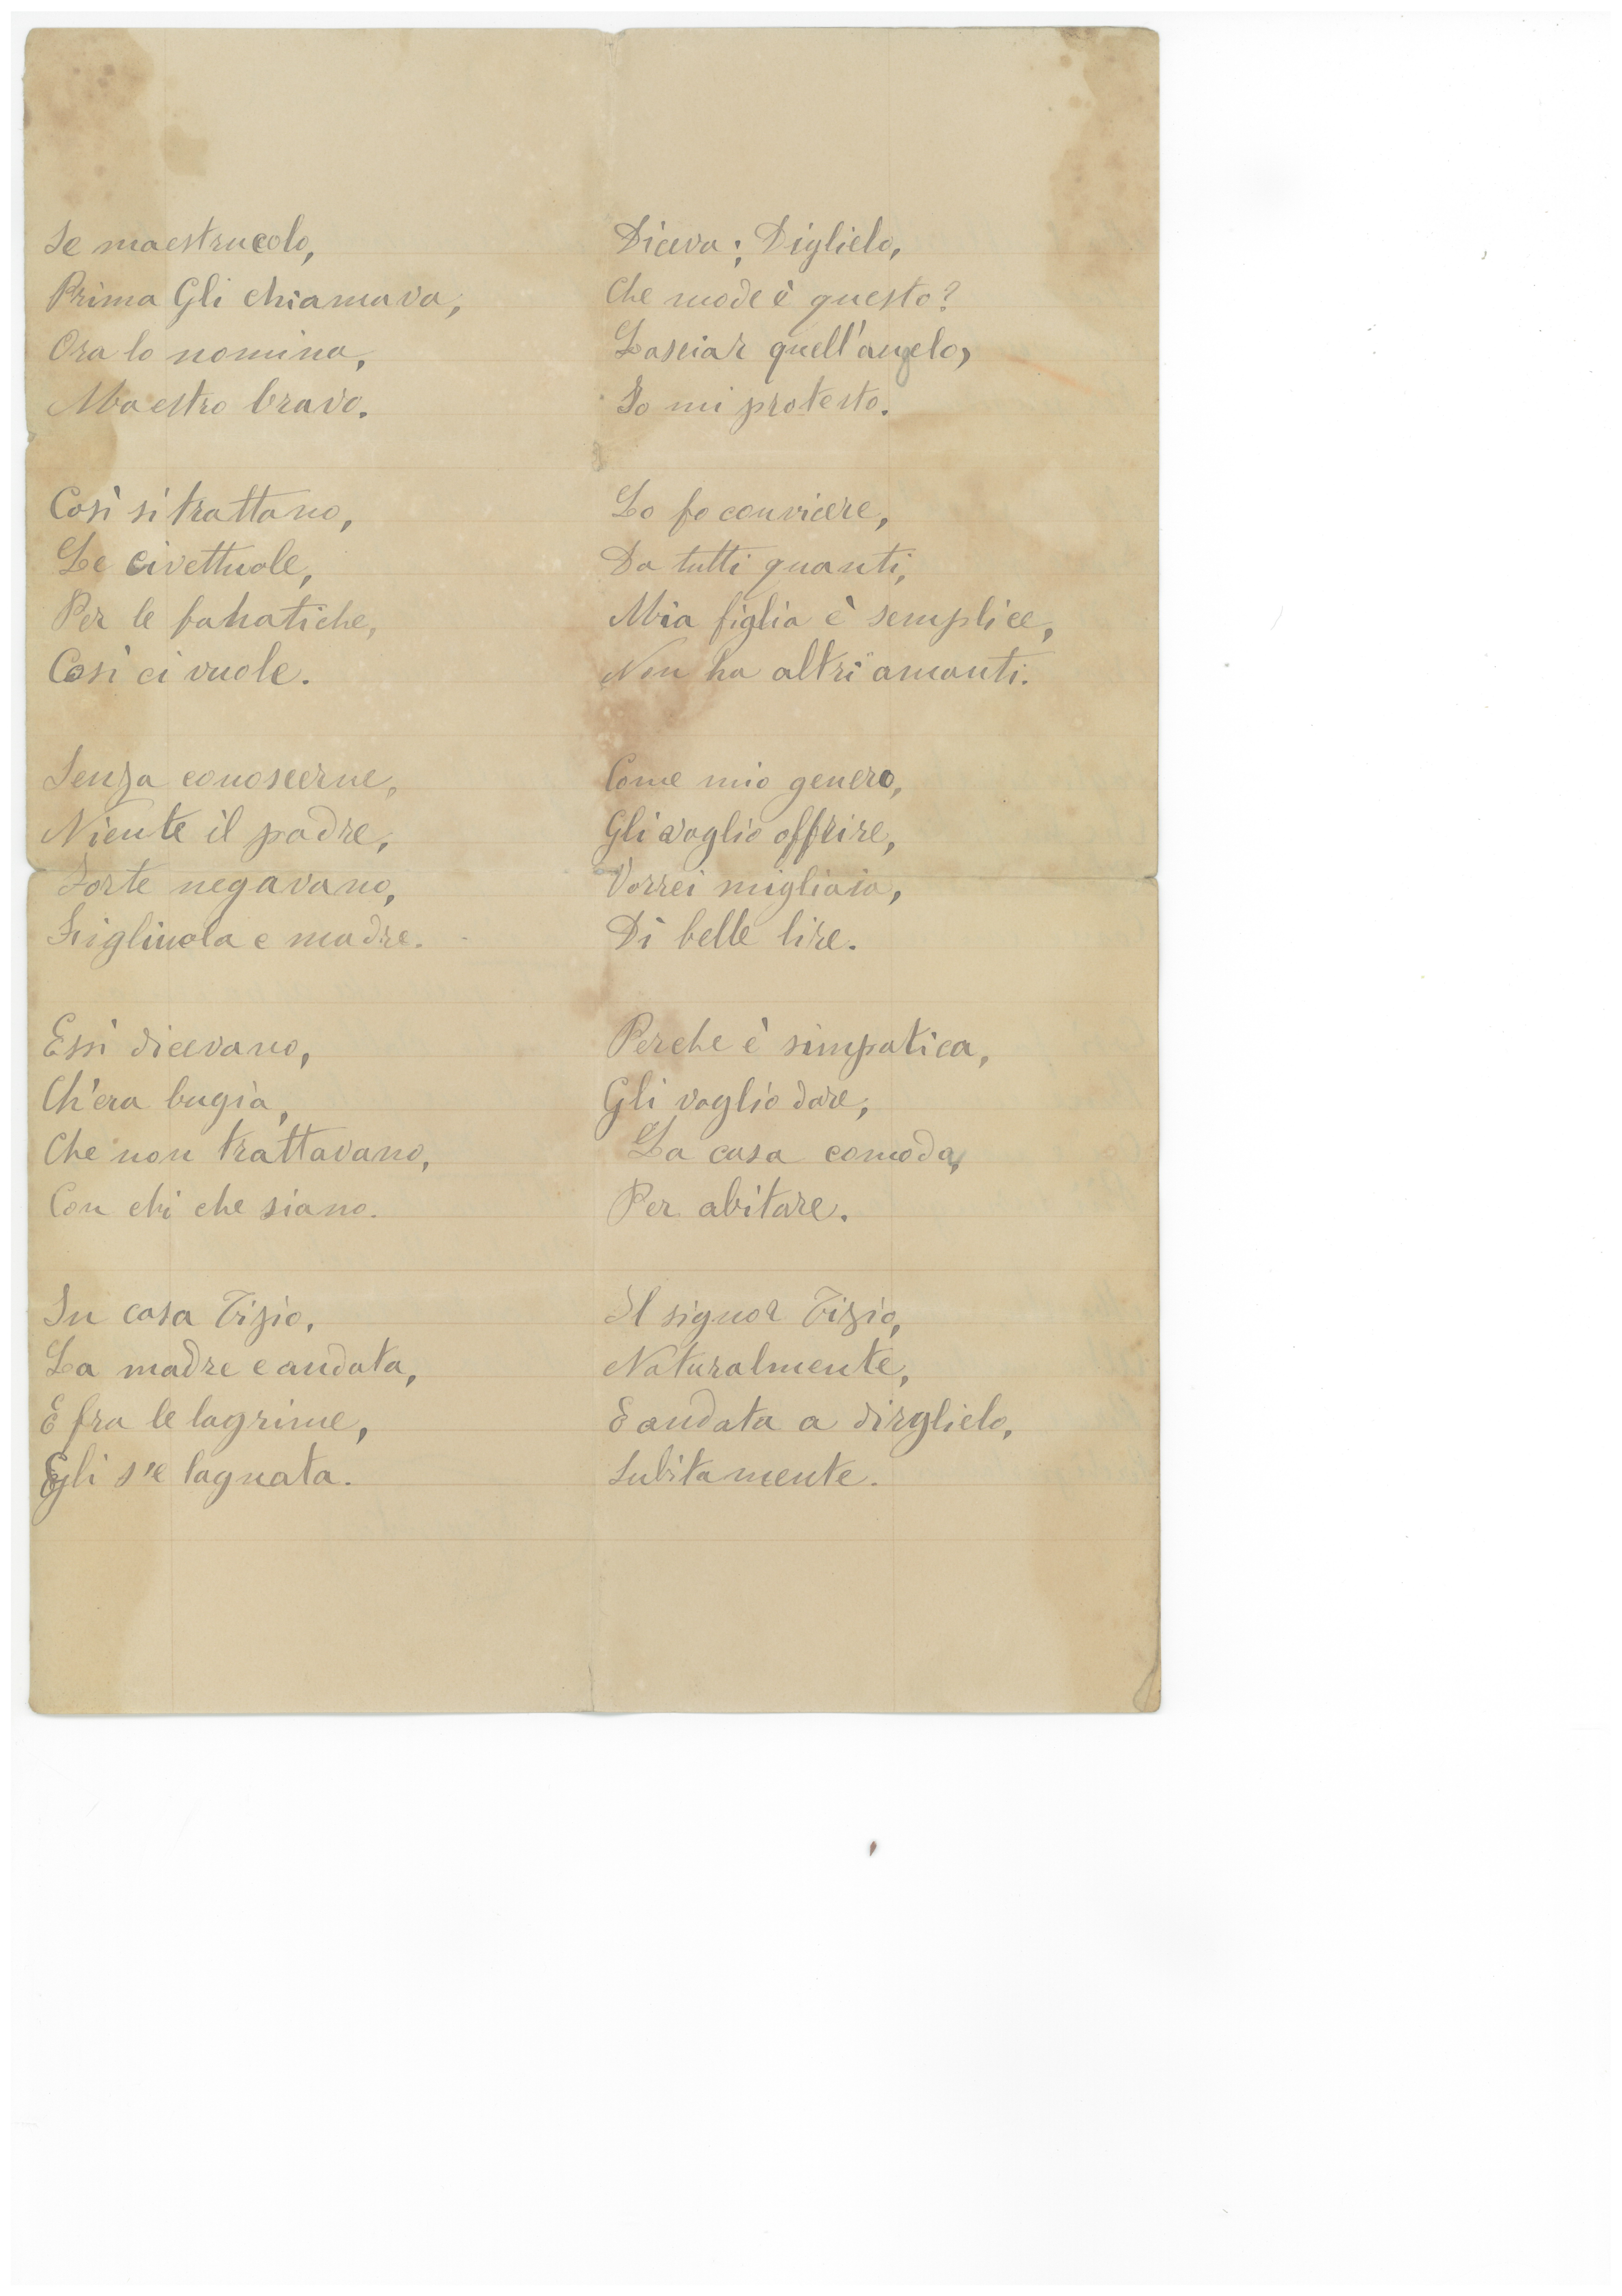 Se maestrucolo,
Prima Gli chiamava,
Ora lo nomina,
Maestro bravo.
Così si trattano,
Le civettuole,
Per le fanatiche,
Così ci vuole.
Senza conoscerne,
Niente il padre,
Forte negavano,
Figliuola e madre.
Essi dicevano,
Ch'era bugia,
Che non trattavano,
Con chi che siano.
In casa Tizio,
La madre e andata,
E fra le lagrime,
Egli s'e lagnata.
Diceva; Diglielo,
Che mode è questo?
Lasciar quell'angelo,
Io mi protesto.
Lo fo convicere,
Da tutti quanti,
Mia figlia è semplice,
Non ha altri amanti.
Come mio genero,
Gli voglio offrire,
Vorrei migliaia,
Di belle lire.
Perche è simpatica,
Gli voglio dare,
La casa comoda,
Per abitare.
Il signor Tizio,
Naturalmente,
E andata a dirglielo,
Subitamente.